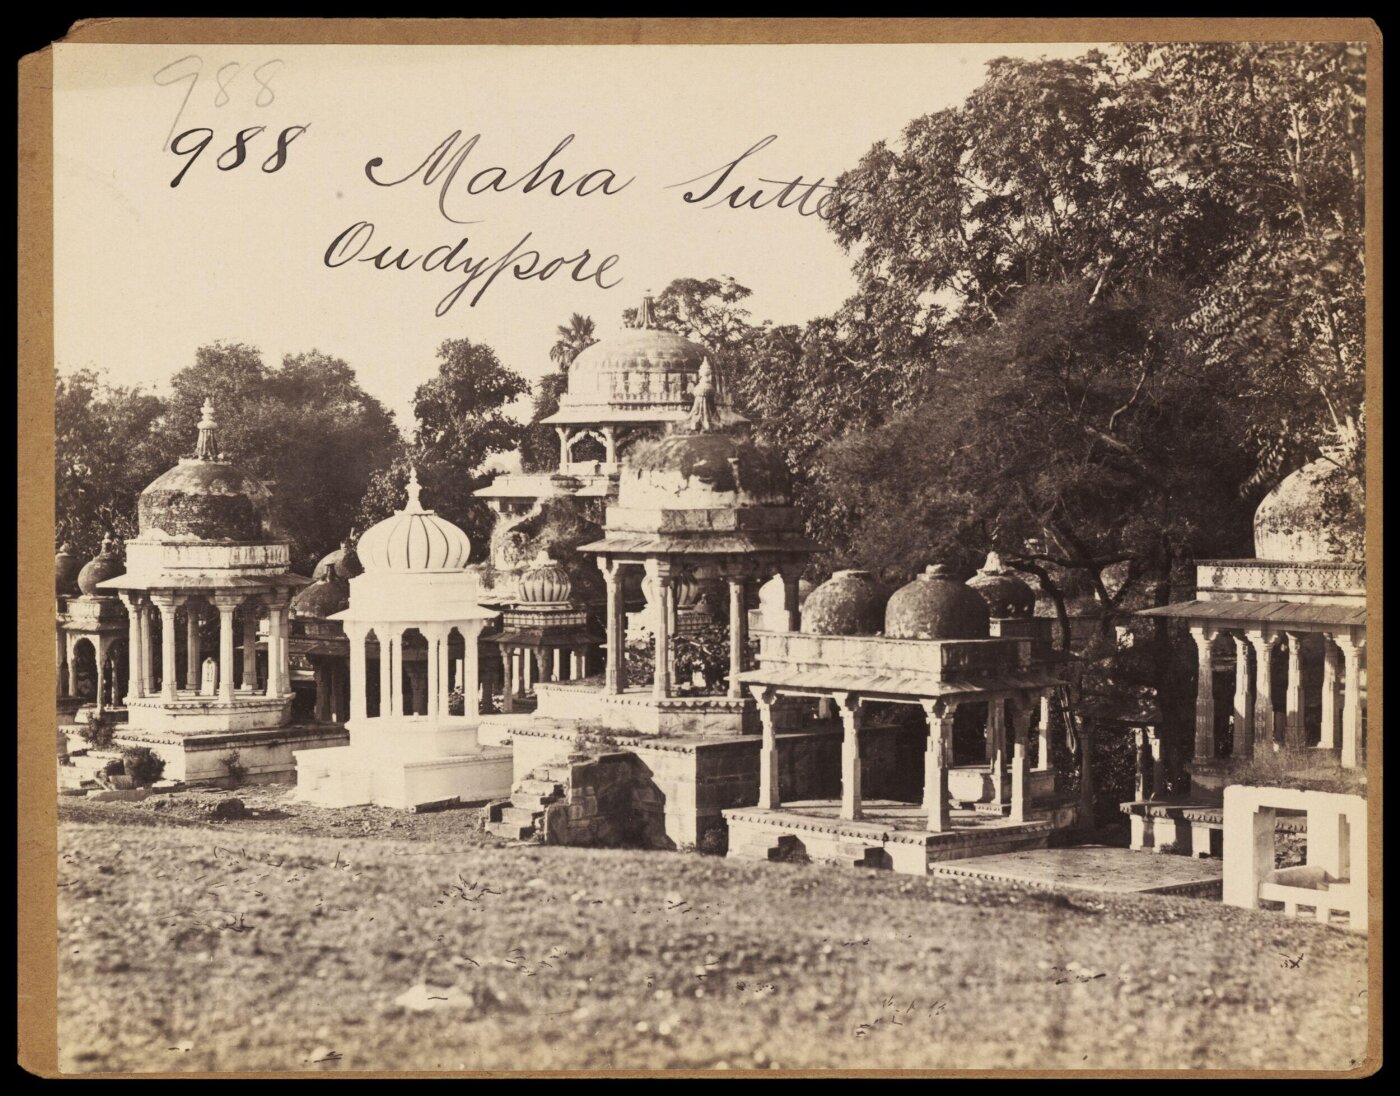 988
988 Maha Suttee
Oudypore